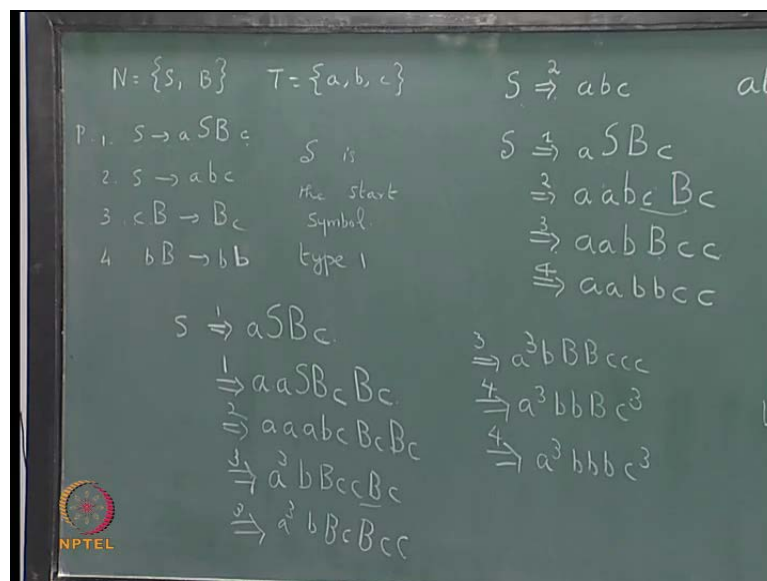 N = {S, B} T = {a, b, c}
P. 1. S → aSBc
2. S → abc
3. cB → Bc
4 bB → bb
S is
the start
symbol.
type 1
S ⇒² abc
ab
S ⇒¹ aSBc
⇒² aabcBc
⇒³ aabBcc
⇒⁴ aabbcc
S ⇒¹ aSBc.
⇒¹ aaSBcBc
⇒² aaabcBcBc
⇒³ a³bBccBc
⇒³ a³bBcBcc
⇒³ a³bBBccc
⇒⁴ a³bbBc³
⇒⁴ a³bbbc³
NPTEL